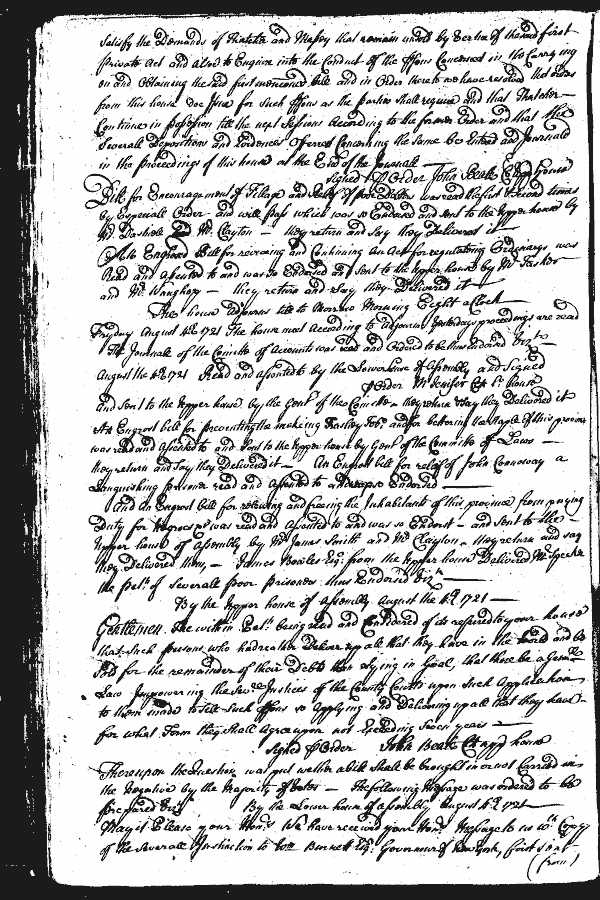 Satisfy the Demands of Thatcher and Massey that remain unsold by Vertue of the said first
Private Act and also to Enquire into the Conduct of the ffons Concerned in the Carrying
on and Obtaining the said first menconed Bill and in Order thereto we have resolved that
from this house doe for Such ffons as the parties shall require and that Thatcher
Continue in possession till the next Sessions According to the former Order and that the
Severall Depositions and Evidences Offered Concerning the Same be Entred and Journald
in the Proceedings of this house at the End of the Journall —
Signed ⅌ Order John Beale Cl up house
Bill for Encouragement of Tillage and Relief of poor Debtrs was read the first & Second times
by Especiall Order and will pass which was so Endorsed and sent to the Upper house by
Mr Dashiele & Mr Clayton — they return and Say they Delivered it —
Also Engrosd Bill for reviveing and Continuing An Act for regulating Ordinarys was
Read and Assented to and was so Endorsed and Sent to the upper house by Mr Tasker
and Mr Wanghop — they return and Say they Delivered it —
The house Adjourns till to Morrow Morning Eight a Clock —
Fryday August 4th 1721 The house met According to Adjournmt Yesterdays proceedings are read
The Journale of the Comitte of Accounts was read and Ordered to be thus endorsed Vizt —
August the 4th 1721 Read and assented to by the Lower house of Assembly and Signed
⅌ Order M Jenifer Clk Lr house
And sent to the upper house by the Gentn of the Comitte — they return & Say they Delivered it
An Engrost bill for preventing the making Trashy Tobo and for bettering the Staple of this province
was read and Assented to and sent to the upper house by Gentn of the Committe of Laws —
they return and Say they Delivered it — An Engrost bill for relief of John Connoway a
Languishing prisoner read and Assented to & thereupon Endorsed —
and an Engrost bill for releiving and freeing the Inhabitants of this province from paying
Duty for Negroes was read and Assented to and was so Endorst — and sent to the
Upper house of Assembly by Mr James Smith and Mr Clayton, they return and say
they Delivered them, — James Bowles Esqr from the upper house Delivered Mr Speaker
the Petn of Severall poor Prisoners thus Endorsed Vizt —
By the Upper house of Assembly August the 4th 1721 —
Gentlemen. The within Petn being read and Considered of its referred to your house
that Such persons who had rather Deliver up all that they have in the world and be
Sold for the remainder of their Debts than Lying in Goal, that there be a Genll
Law Impowering the Sevll Justices of the County Courts upon Such Application
to them made to Sell Such ffons so Applying and Delivering up all that they have
for what Term they Shall Agree upon not Exceeding Seven years —
Signd ⅌ Order John Beale Cl upp house
Thereupon the Question was put wether a bill Shall be brought in or not Carried in
the Negative by the Majority of Votes — The following Message was ordered to be
prepared Vizt By the Lower house of assembly August 4th 1721 —
May it Please your Honrs We have received your Honrs Message to us wth Copy
of the Severall Instruction to Wm Burnett Esqr Governour of New York, first sent
(from)